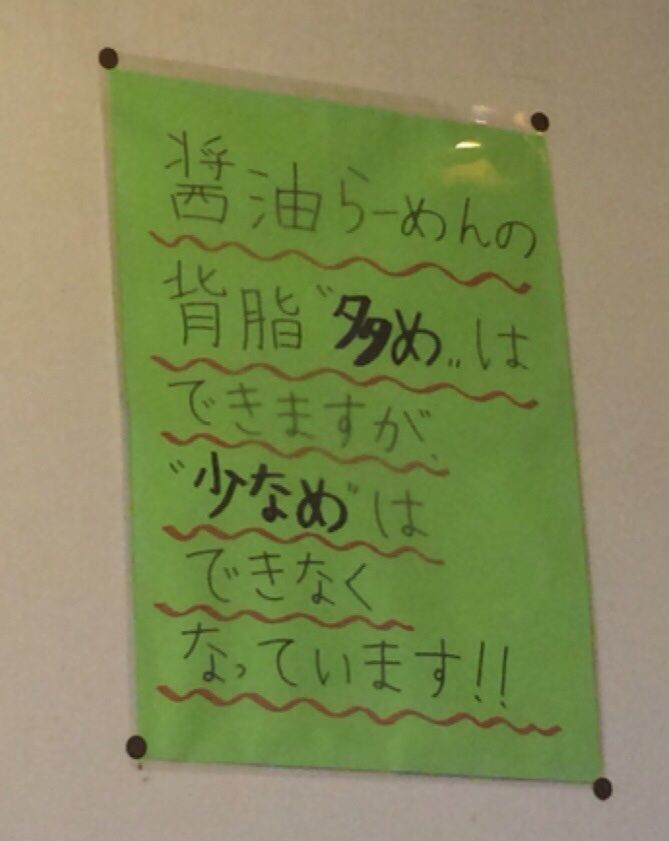 醤油らーめんの
背脂〝多め〟は
できますが、
〝少なめ〟は
できなく
なっています!!